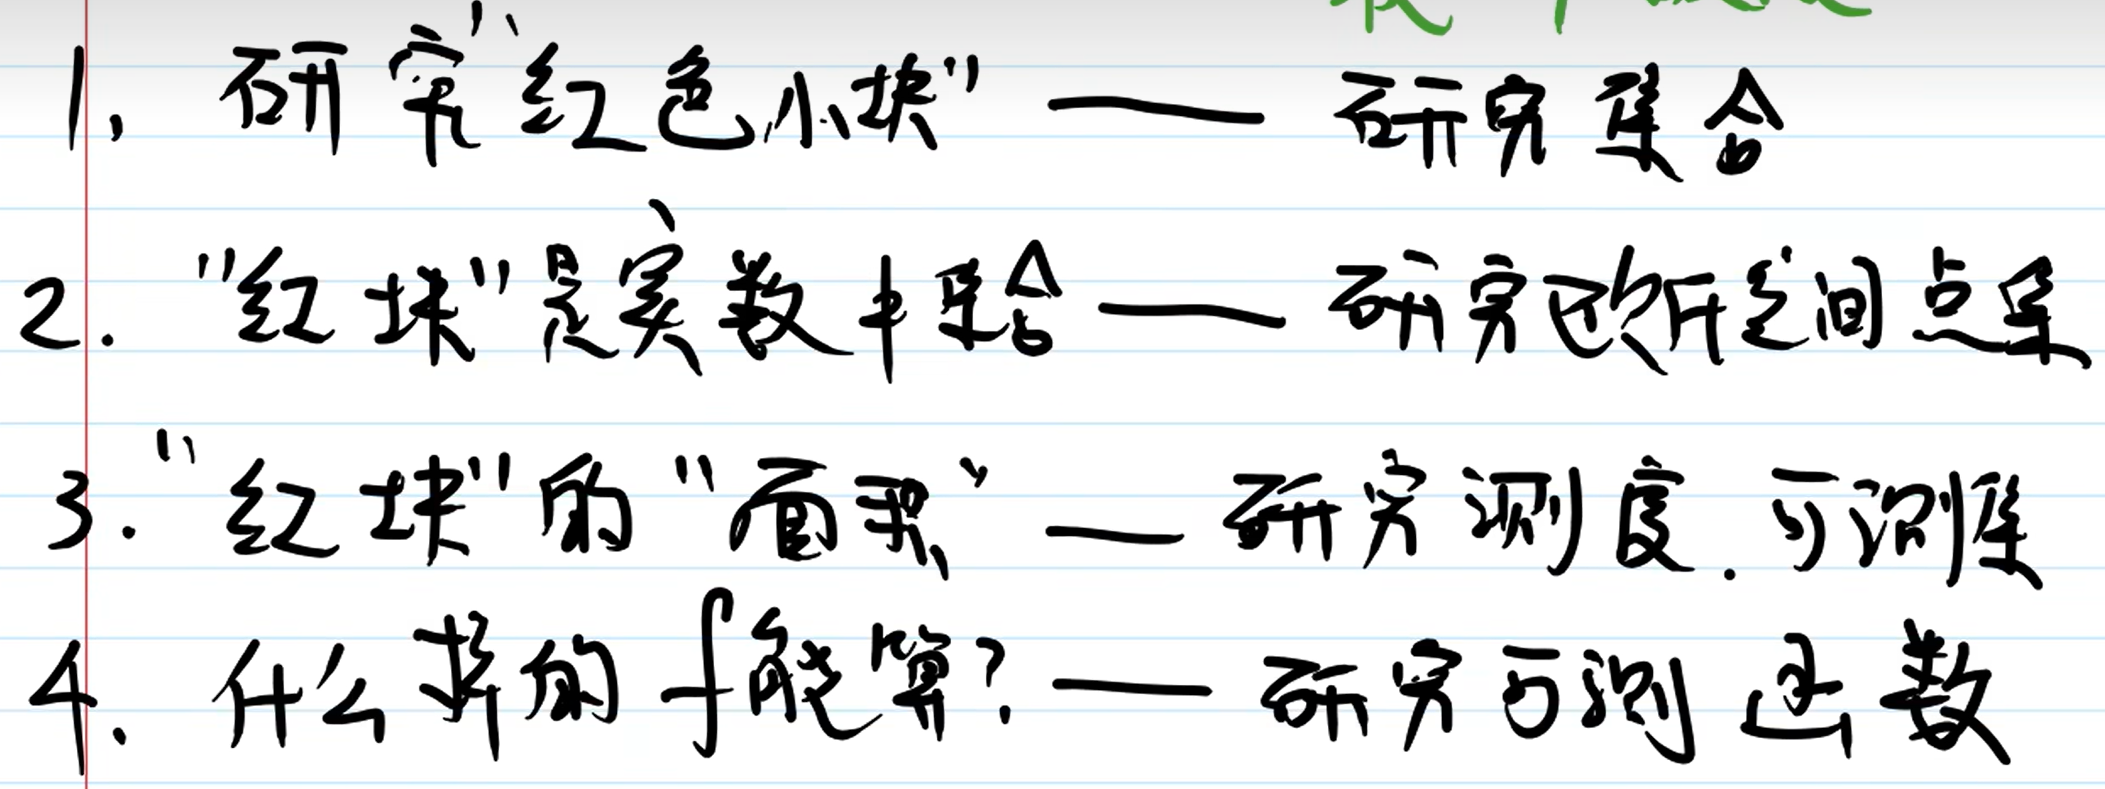 1. 研究"红色小块" —— 研究集合
2. "红块"是实数中集合 —— 研究欧氏空间点集
3. "红块"的"面积" —— 研究测度.可测集
4. 什么样的f能算? —— 研究可测函数